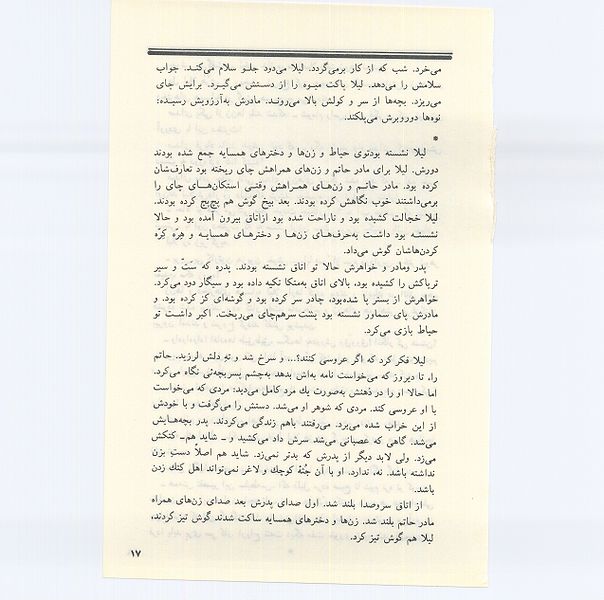 می‌خرد. شب که از کار برمی‌گردد. لیلا می‌دود جلـو سلام می‌کنـد. جواب
سلامش را می‌دهد. لیلا پاکت میـوه را از دستـش می‌گیـرد. برایش چای
می‌ریزد. بچه‌ها از سر و کولش بالا می‌رونـد. مادرش به‌آرزویش رسیـده؛
نوه‌ها دوروبرش می‌پلکند.
*
لیلا نشسته بودتوی حیاط و زن‌ها و دخترهای همسایه جمع شده بودند
دورش. لیلا برای مادر حاتم و زن‌های همراهش چای ریخته بود تعارف‌شان
کرده بود. مادر حاتـم و زن‌هـای همـراهش وقتـی استکان‌هـای چای را
برمی‌داشتند خوب نگاهش کرده بودند. بعد بیخ گوش هم پچ‌پچ کرده بودند.
لیلا خجالت کشیده بود و ناراحت شده بود ازاتاق بیرون آمده بود و حالا
نشستـه بود داشـت به‌حرف‌های زن‌ها و دخترهای همسایـه و هِرّه کِرّه
کردن‌هاشان گوش می‌داد.
پدر ومادر و خواهرش حالا تو اتاق نشسته بودند. پدره که سَتّ و سیر
تریاکش را کشیده بود، بالای اتاق به‌متکا تکیه داده بود و سیگار دود می‌کرد.
خواهرش از بستر پا شده‌بود، چادر سر کرده بود و گوشه‌ای کز کرده بود. و
مادرش پای سماور نشسته بود پشت سرهم‌چای می‌ریخت. اکبر داشـت تو
حیاط بازی می‌کرد.
لیلا فکر کرد که اگر عروسی کنند؟... و سرخ شد و تهِ دلش لرزید. حاتم
را، تا دیروز که می‌خواست نامه به‌اش بدهد به‌چشم پسربچه‌ئی نگاه می‌کرد.
اما حالا او را در ذهنش به‌صورت یك مرد کامل می‌دید: مردی که می‌خواست
با او عروسی کند. مردی که شوهر او می‌شد. دستش را می‌گرفت و با خودش
از این خراب شده می‌برد. می‌رفتند باهم زندگی می‌کردند. پدر بچه‌هـایش
می‌شد. گاهی که عصبانی می‌شد سرش داد می‌کشید و ـ شاید هم‌ـ کتکش
می‌زد. ولی لابد دیگر از پدرش که بدتر نمی‌زد. شاید هم اصلاً دستِ بزن
نداشته باشد. نه، ندارد. او با آن جُثّهٔ کوچك و لاغر نمی‌تواند اهل کتك زدن
باشد.
از اتاق سروصدا بلند شد. اول صدای پدرش بعد صدای زن‌های همراه
مادر حاتم بلند شد. زن‌ها و دخترهای همسایه ساکت شدند گوش تیز کردند.
لیلا هم گوش تیز کرد.
۱۷